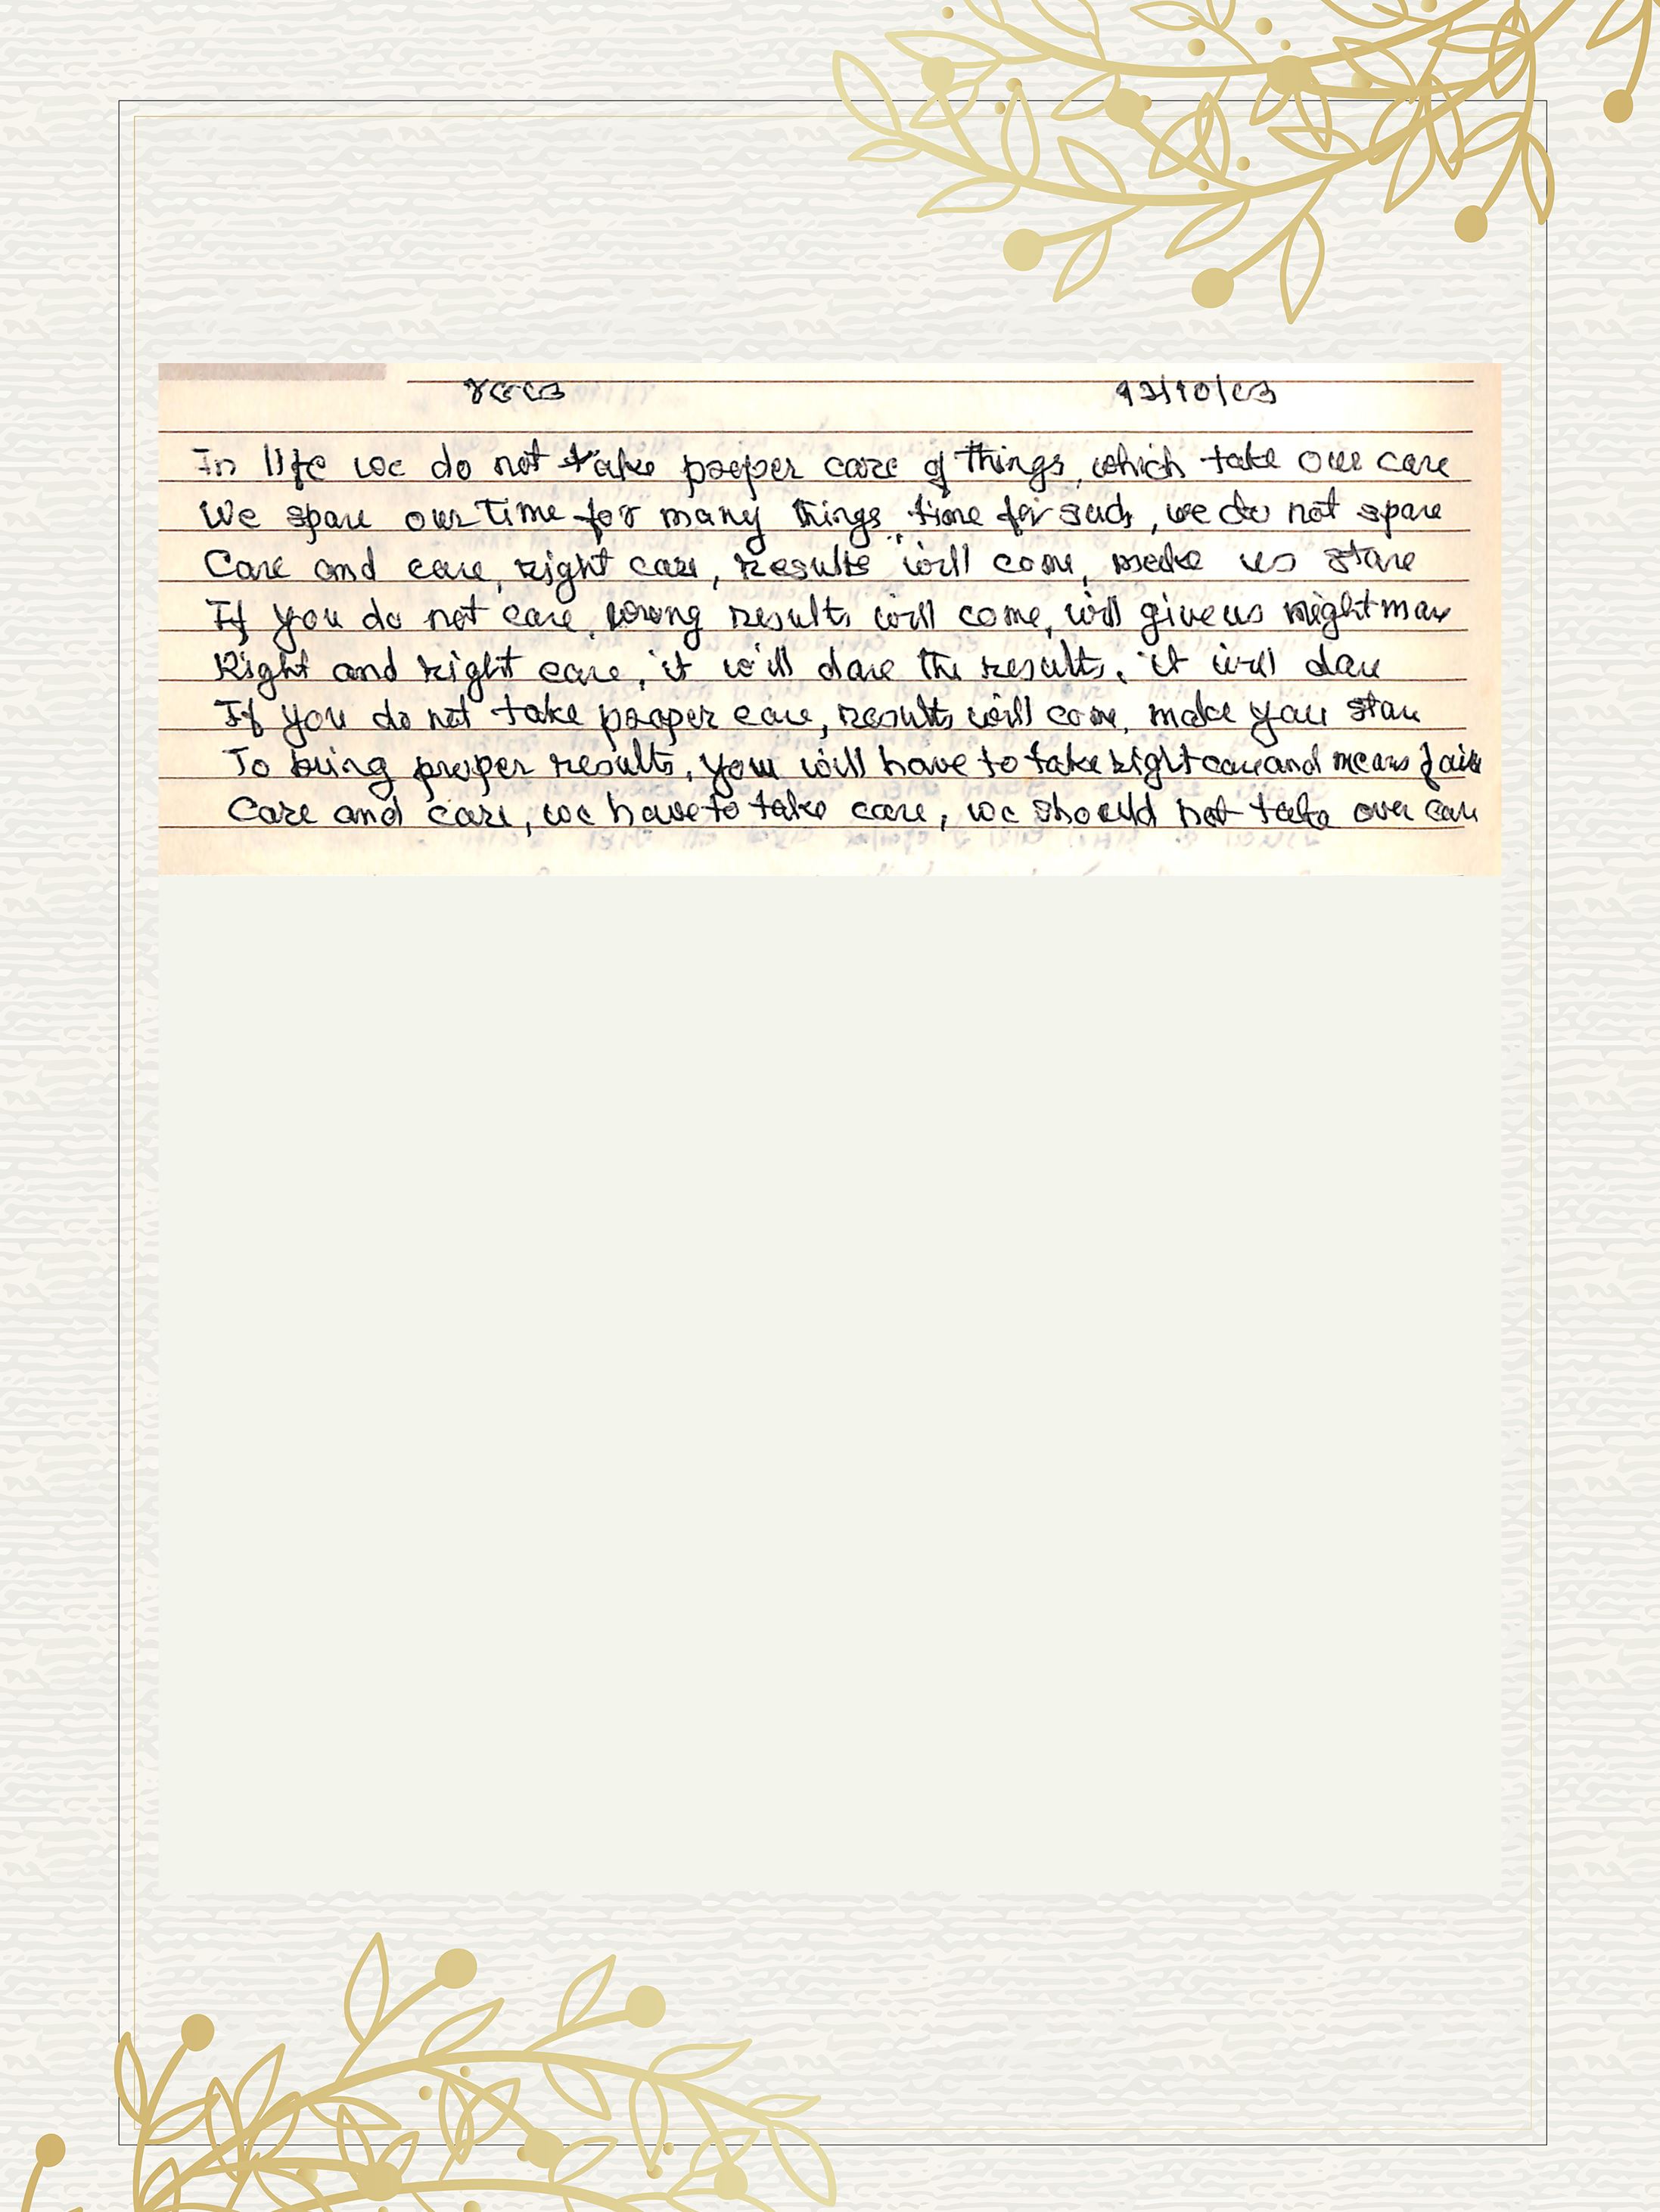 In life we do not take proper care of things, which take our care
We spare our time for many things, time for such, we do not spare
Care and care, right care, results will come, make us stare
If you do not care, wrong results will come, will give us nightmare
Right and right care, it will dare the results, it will dare
If you do not take proper care, results will come, make you stare
To bring proper results, you will have to take right care and means fair
Care and care, we have to take care, we should not take over care